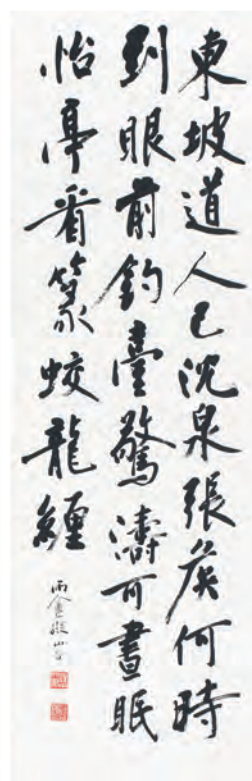 東坡道人已沈泉張侯何時
到眼前釣臺驚濤可晝眠
怡亭看篆蛟龍纏
雨盦擬山谷